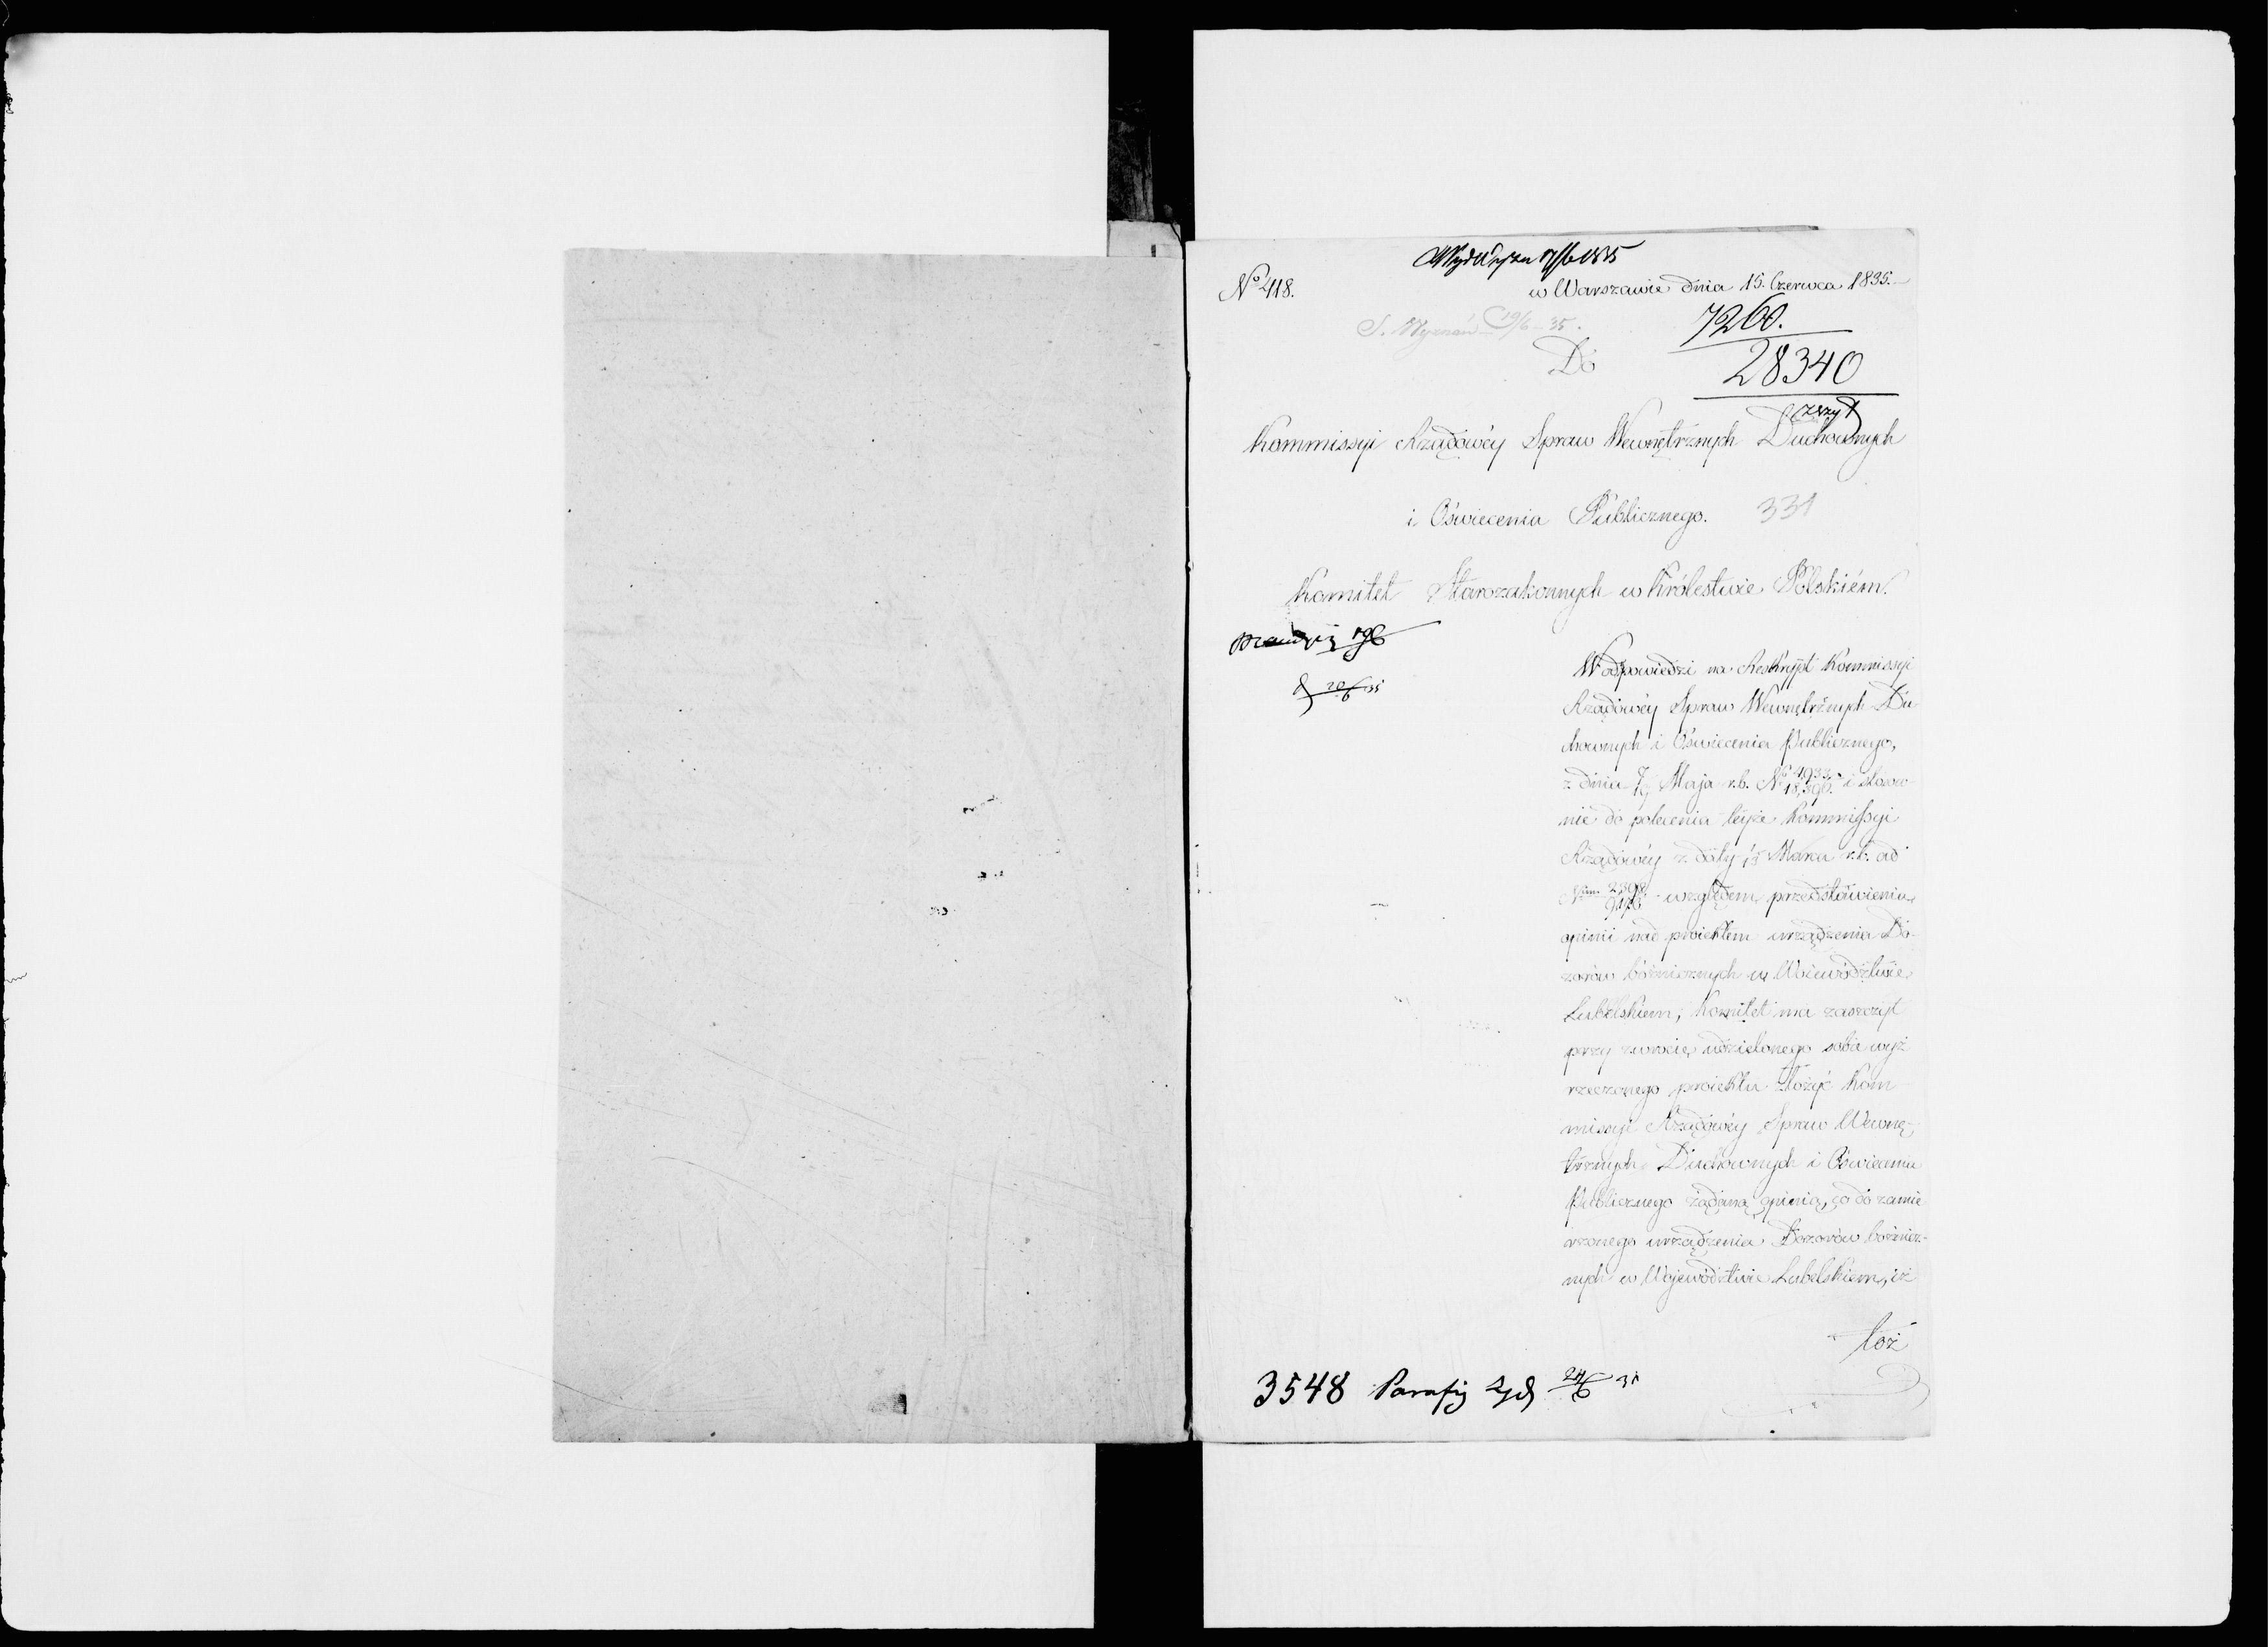 17/6 1835
No 418.
w Warszawie dnia 15. Czerwca 1835.
19/6 35.
7260.
28340
Do
zszyt
Kommissyi Rządowéy Spraw Wewnętrznych Duchownych
i Oświecenia Publicznego. 331
Komitet Starozakonnych w Królestwie Polskiém.
20/6 35
W odpowiedzi na Reskrypt Kommissyi
Rządowéy Spraw Wewnętrznych Du
chownych i Oświecenia Publicznego,
z dnia 7/19 Maja r.b. No 4933/18,390. i stosow-
nie do polecenia teyże Kommissyi
Rządowéy z daty Marca r.b. ad
Num względem przedstawienia
opinii nad proiektem urządzenia Do-
zorów bóżniczych w Woiewództwie
Lubelskiem, Komitet ma zaszczyt
przy zwrocie udzielonego sobie wyż
rzeczonego proiektu złożyć Kom
missyi Rządowéy Spraw Wewnę-
trznych Duchownych i Oświecenia
Publicznego żądaną opinią, co do zamie
rzonego urządzenia Dozorów bóżnicz-
nych w Województwie Lubelskiem, iż
toż
3548 Parafij 24/6 35